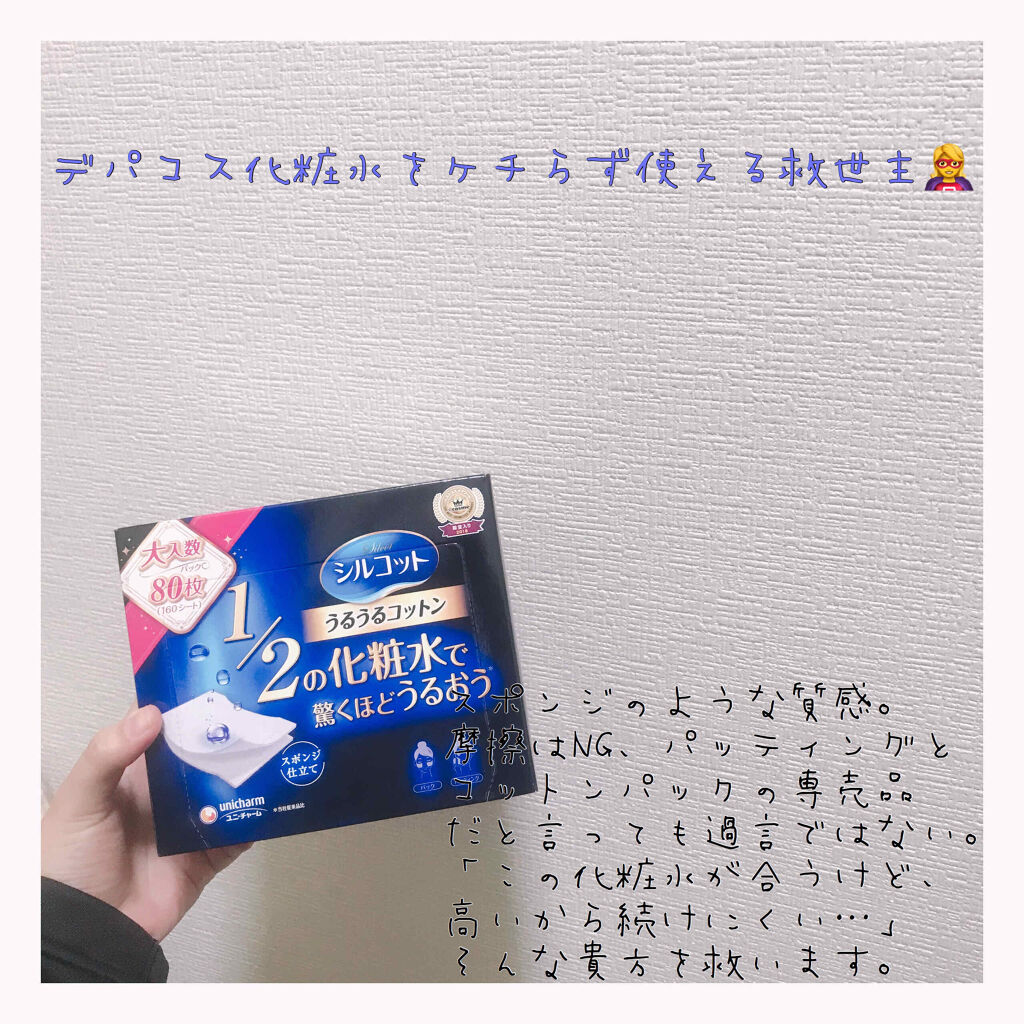 デパコス化粧水をケチらず使える救世主
大入数
パックC
80枚
(160シート)
Silcot
シルコット
うるうるコットン
1/2の化粧水で
驚くほどうるおう
スポンジ
仕立て
unicharm
ユニ・チャーム
※当社従来品比
パック
殿堂入り
2018
スポンジのような質感。
摩擦はNG、パッティングと
コットンパックの専売品
だと言っても過言ではない。
「この化粧水が合うけど、
高いから続けにくい…」
そんな貴方を救います。